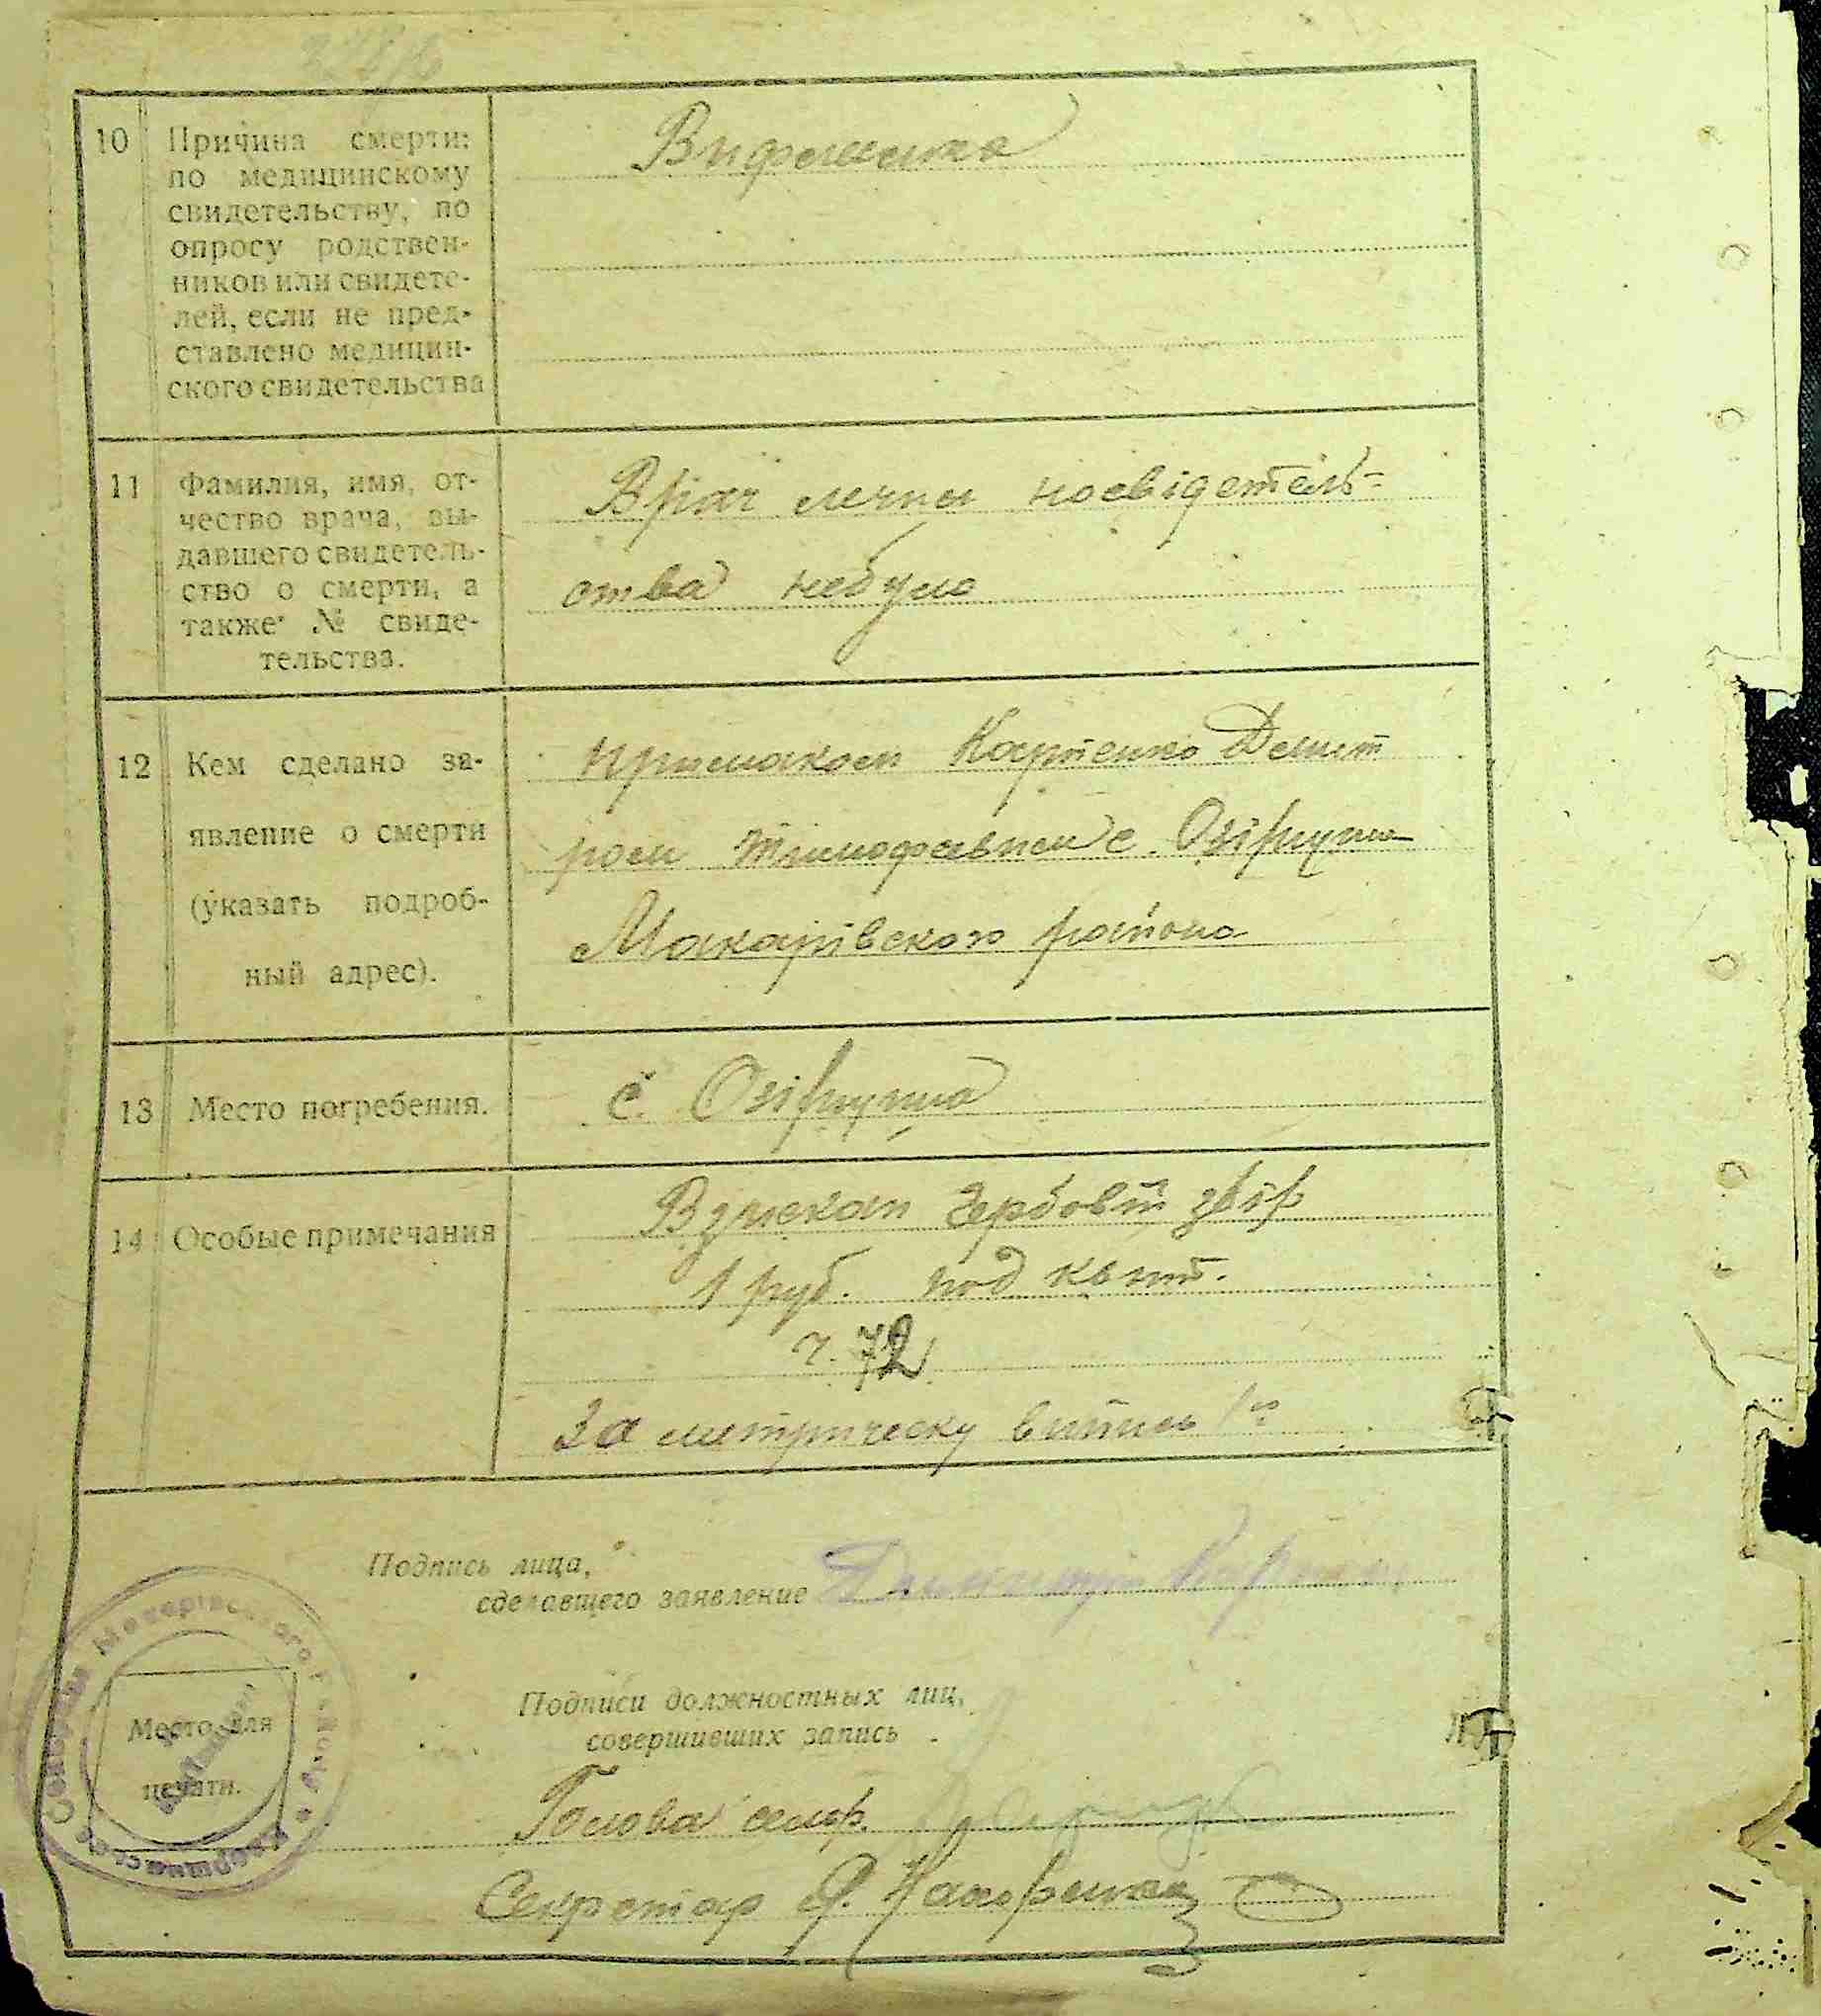 10 Причина смерти:
по медицинскому
свидетельству, по
опросу родствен-
ников или свидете-
лей, если не пред-
ставлено медицин-
ского свидетельства
11 Фамилия, имя, от-
чество врача, вы-
давшего свидетель-
ство о смерти, а
также № свиде-
тельства.
Врач
ства небуло
12 Кем сделано за-
явление о смерти
(указать подроб-
ный адрес).
примаком Карпенко Демит
ром тимофевием с. Озірщина
Макарівского района
13 Место погребения.
с. Озірщина
14 Особые примечания
Взыскан гербовий збір
1 руб. под квит.
ч. 72
За метрическу випись 1
Подпись лица,
сделавшего заявление
Место для
печати.
Подписи должностных лиц,
совершивших запись
Голова сельр.
Секретар